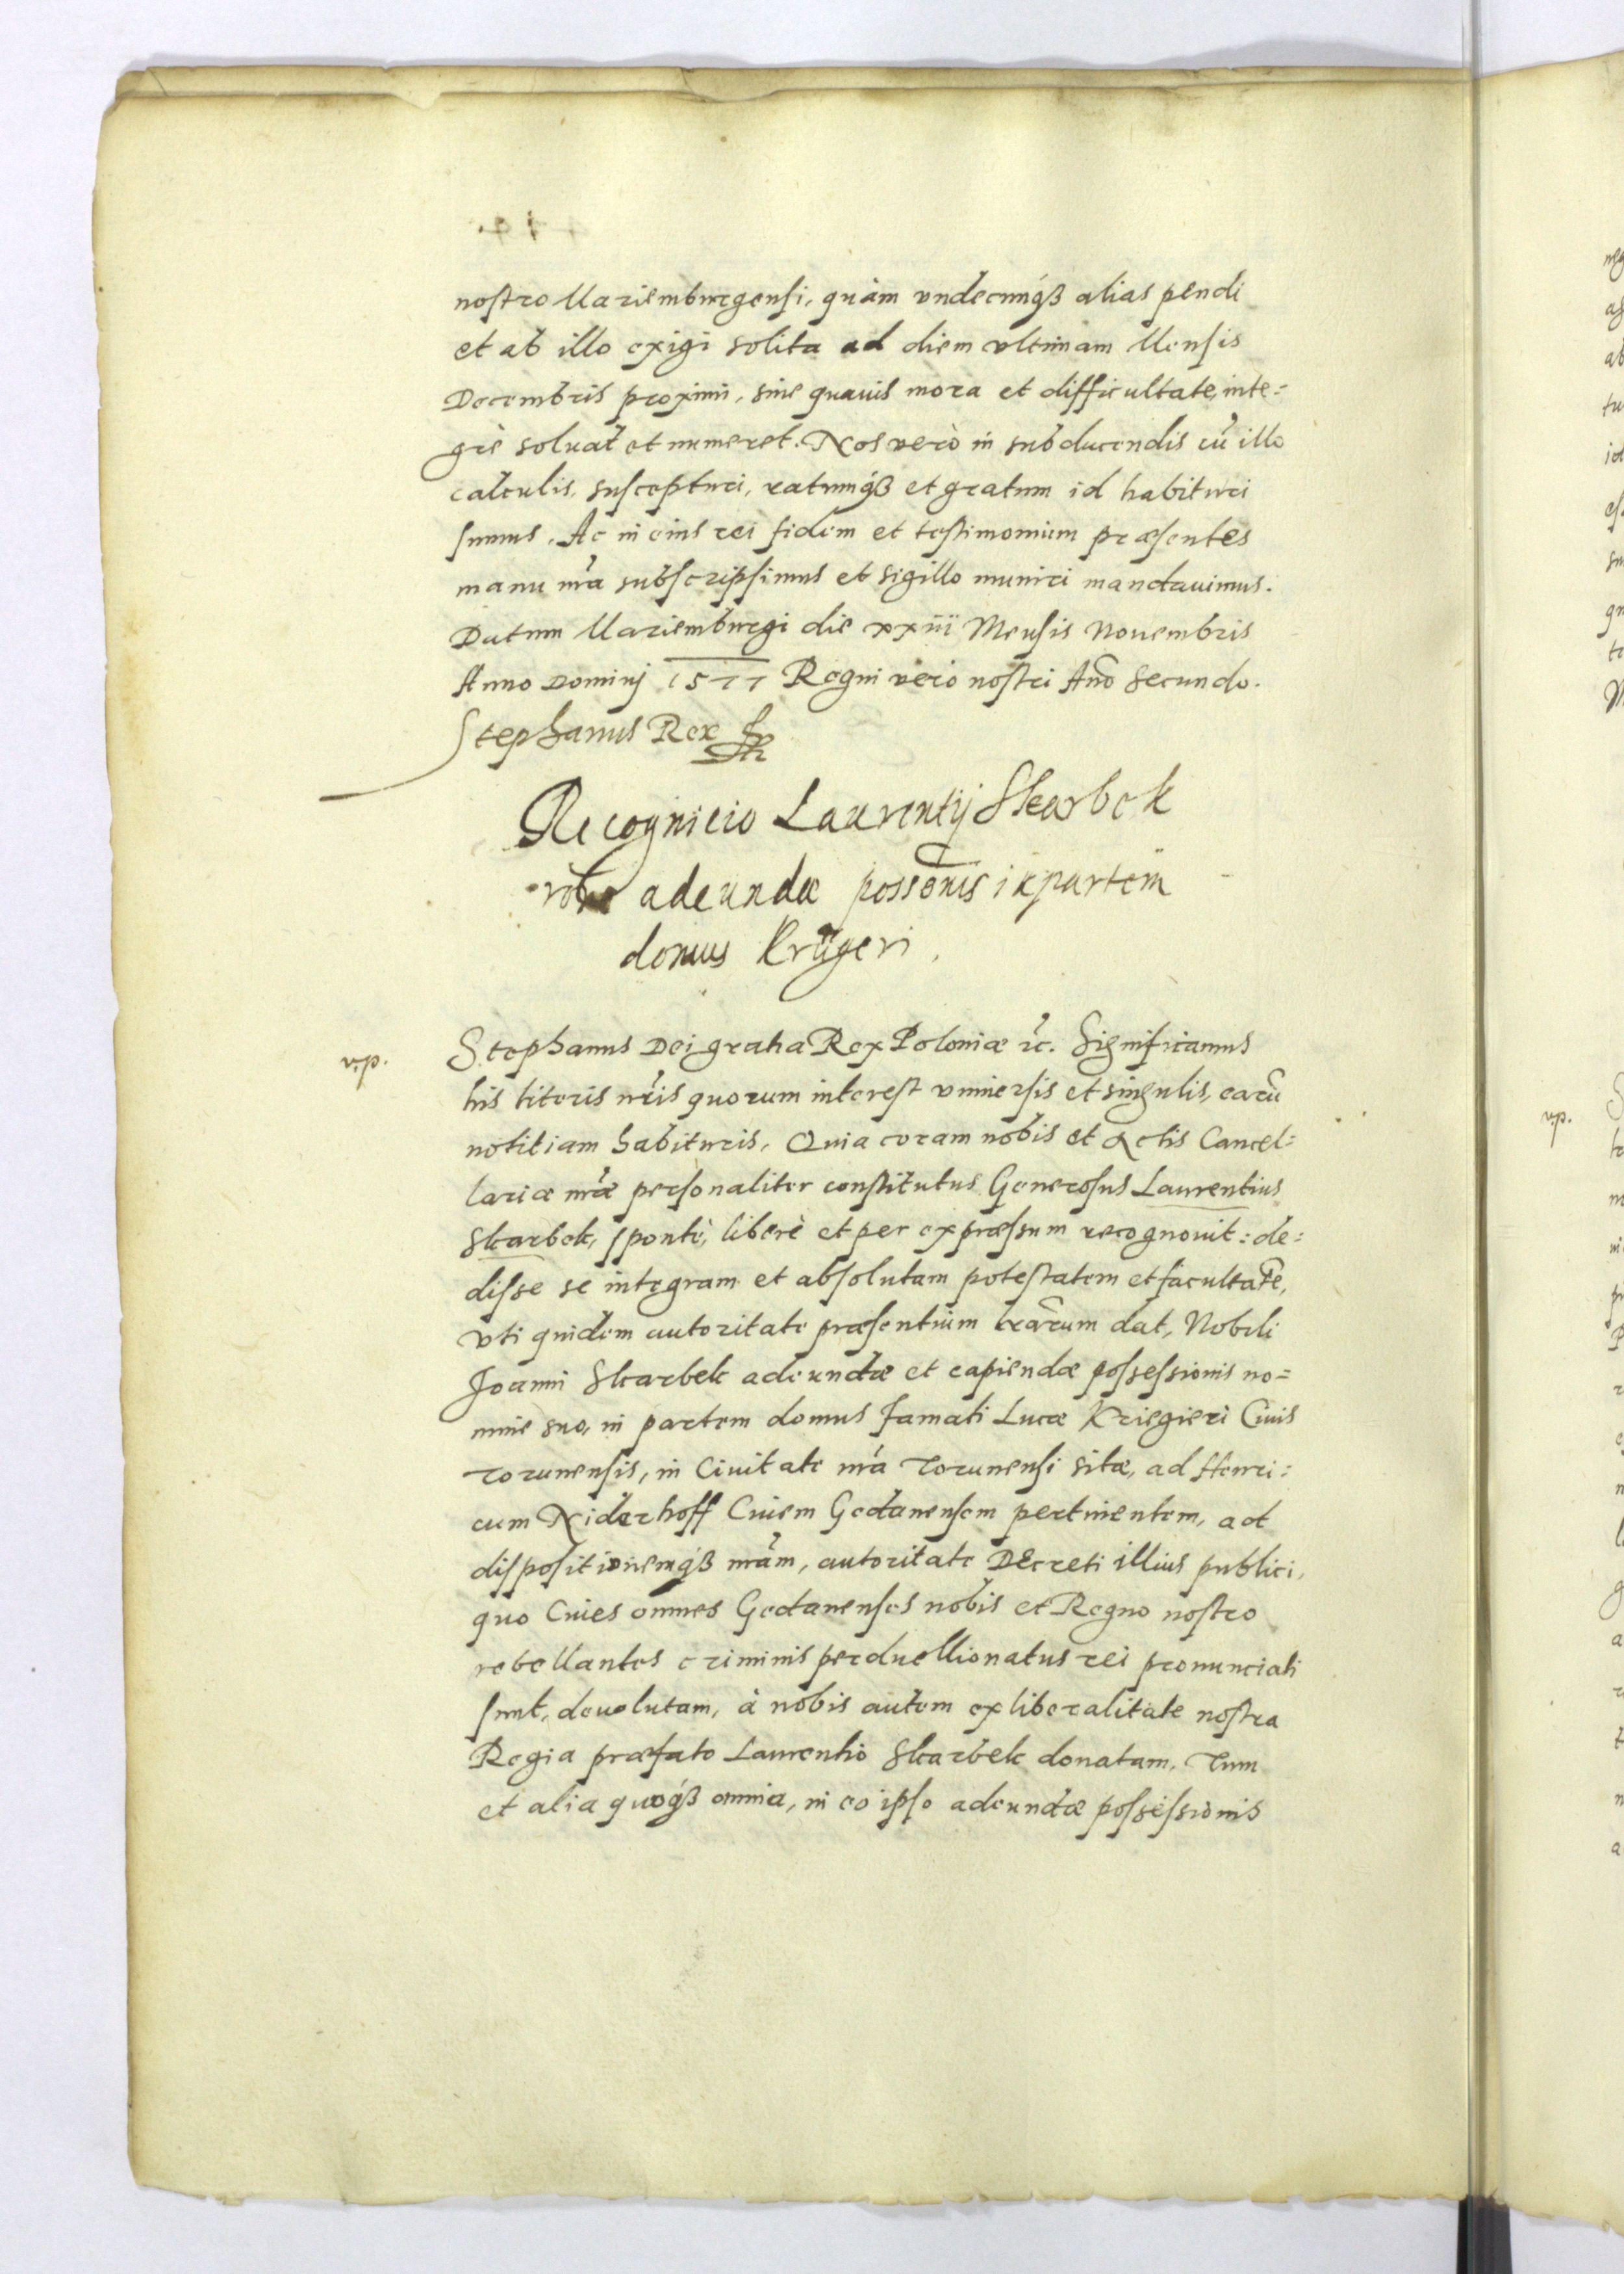 nostro Mariemburgensi, quàm vndecunq́ꝫ alias pendi
et ab illo exigi solita ad diem vltimam Mensis
Decembris proximi, sine quauis mora et difficultate, inte=
grè soluat et numeret. Nos verò in subducendis cũ illo
calculis, suscepturi, ratumq́ꝫ et gratum id habituri
sumus. Ac in eius rei fidem et testimonium præsentes
manu nr̃a subscripsimus et sigillo muniri mandauimus.
Datum Mariemburgi die xxiii Mensis Nouembris
Anno Dominj 1577 Regni verò nostri Añо Secundo.
Stephanus Rex
Recognicio Laurentij Skarbek
adeundæ possõnis in partem
domus Krügeri.
v.p.
Stephanus Dei gratia Rex Poloniæ ꝛc. Significamus
his literis nr̃is quorum interest vniuersis et singulis, earũ
notitiam habituris, Quia coram nobis et Actis Cancel=
lariæ nr̃æ personaliter constitutus Generosus Laurentius
Skarbek, spontè, liberè et per expræssum recognouit: de=
disse se integram et absolutam potestatem et facultatẽ,
vti quidem autoritate præsentium lr̃arum dat, Nobili
Joanni Skarbek adeundæ et capiendæ possessionis no=
mine suo, in partem domus famati Lucæ Kriegieri Ciuis
Torunensis, in Ciuitate nr̃a Torunensi sitæ, ad Henri=
cum Niderhoff Ciuem Gedanensem pertinentem, ad
dispositionemq́ꝫ nr̃am, autoritate Decreti illius publici,
quo Ciues omnes Gedanenses nobis et Regno nostro
rebellantes criminis perduellionatus rei pronunciati
sunt, deuolutam, à nobis autem ex liberalitate nostra
Regia præfato Laurentio Skarbek donatam. Tum
et alia quoq́ꝫ omnia, in eo ipso adeundæ possessionis